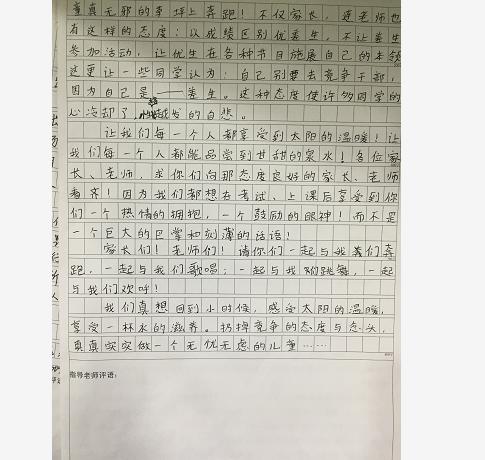 童真无邪的草坪上奔跑！不仅家长，连老师也
有这样的态度：以成绩区别优差生，不让差生
参加活动，让优生在各种节目施展自己的本领
这更让一些同学认为：自己别要去竞争干部，
因为自己是——差生。这种态度使许多同学的
心冷却了，越发的自悲。
让我们每一个人都享受到太阳的温暖！让
我们每一个人都能品尝到甘甜的泉水！各位家
长、老师，求你们向那态度良好的家长、老师
看齐！因为我们都想在考试、上课后享受到你
们一个热情的拥抱，一个鼓励的眼神！而不是
一个巨大的巴掌和刻薄的话语！
家长们！老师们！请你们一起与我们奔
跑，一起与我们歌唱；一起与我们跳舞，一起
与我们欢呼！
我们真想回到小时候，感受太阳的温暖，
享受一杯水的滋养。扔掉竞争的态度与念头，
真真实实做一个无忧无虑的儿童……
指导老师评语：